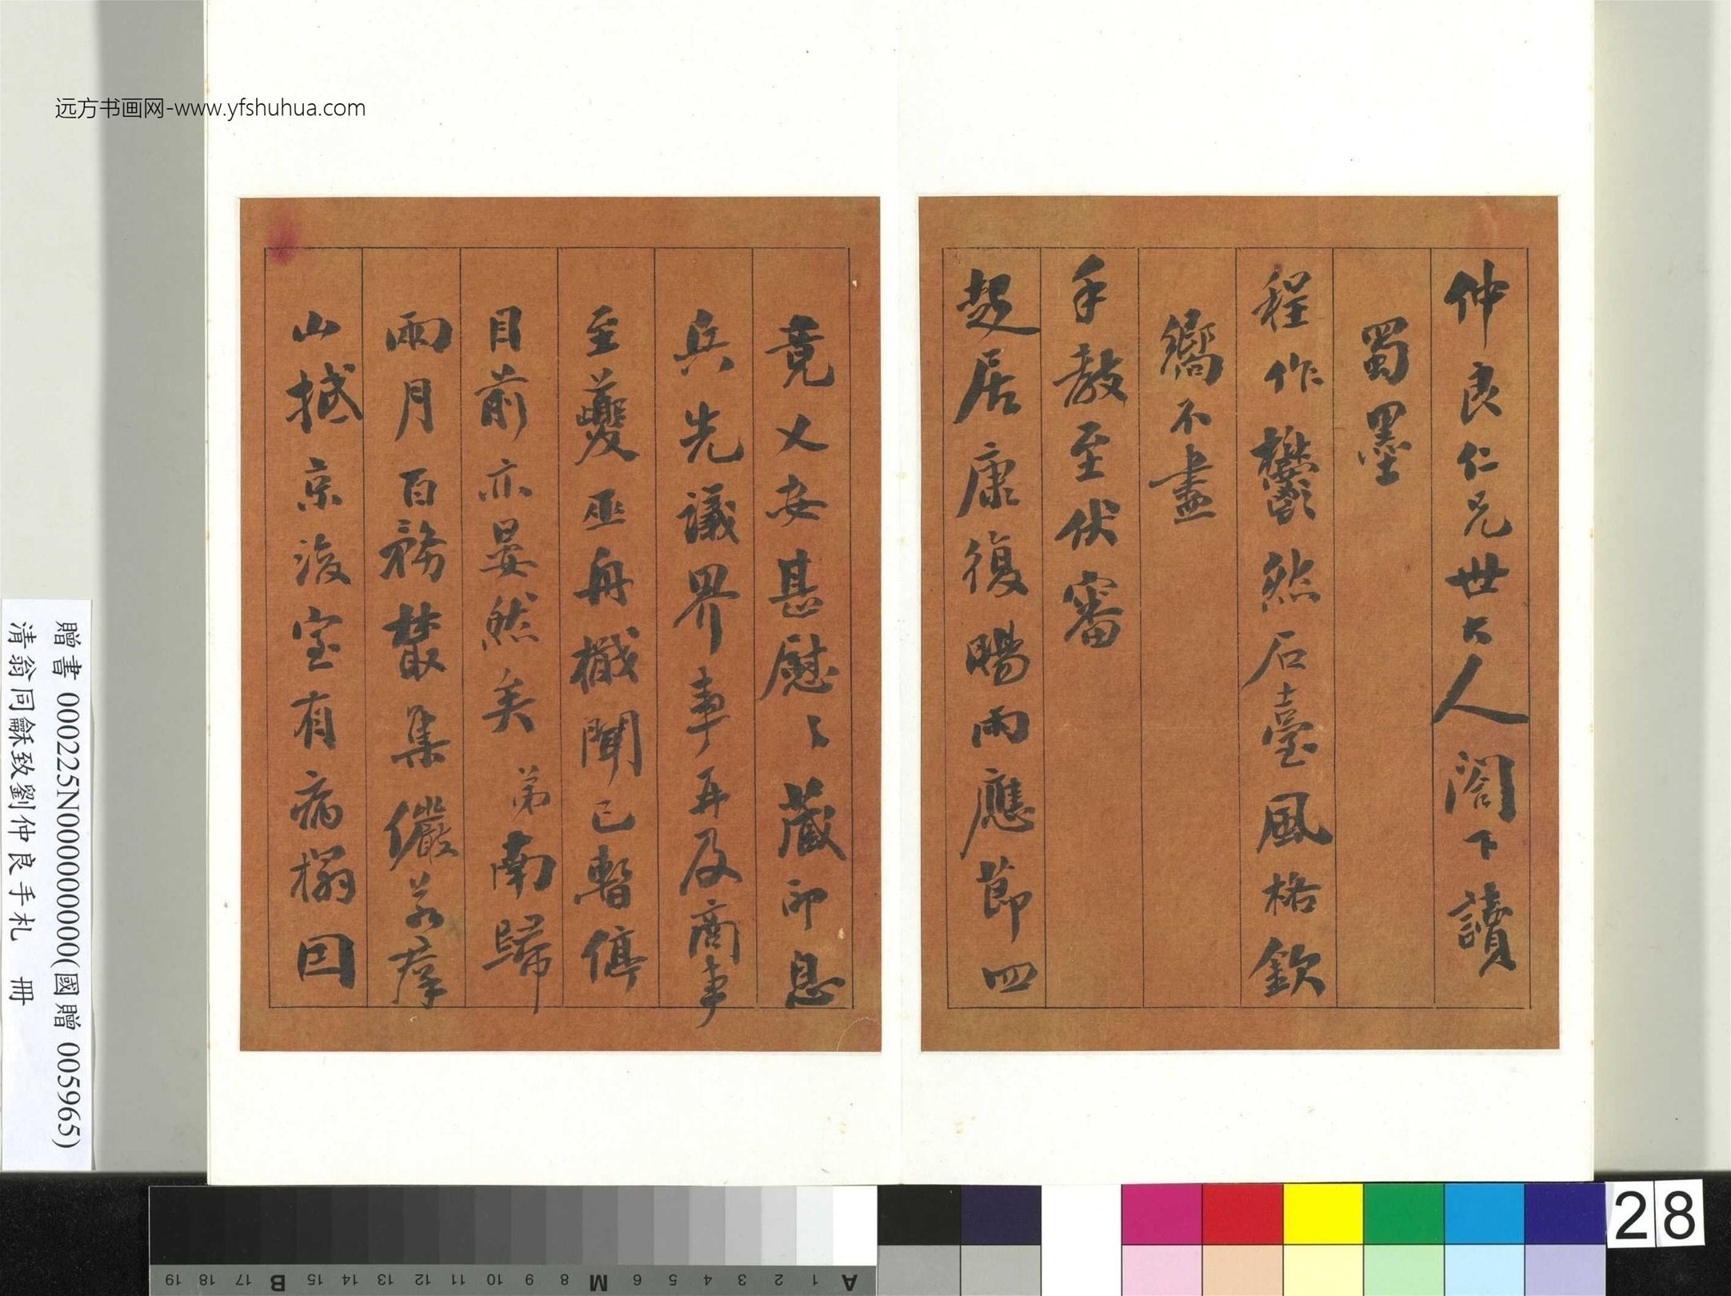 远方书画网-www.yfshuhua.com
仲良仁兄世大人閣下讀
蜀墨
程作鬱然石臺風格欽
嚮不盡
手教至伏審
起居康復暘雨應節四
竟乂安甚慰〻藏印息
兵先議界事再及商事
至夔巫舟檝聞已暫停
目前亦晏然矣弟南歸
兩月百務叢集儼若羣
山撼京後室有病榻因
贈書 000225N000000000(國贈 005965)
清翁同龢致劉仲良手札 冊
28
A 1 2 3 4 5 6 M 8 9 10 11 12 13 14 15 B 17 18 19